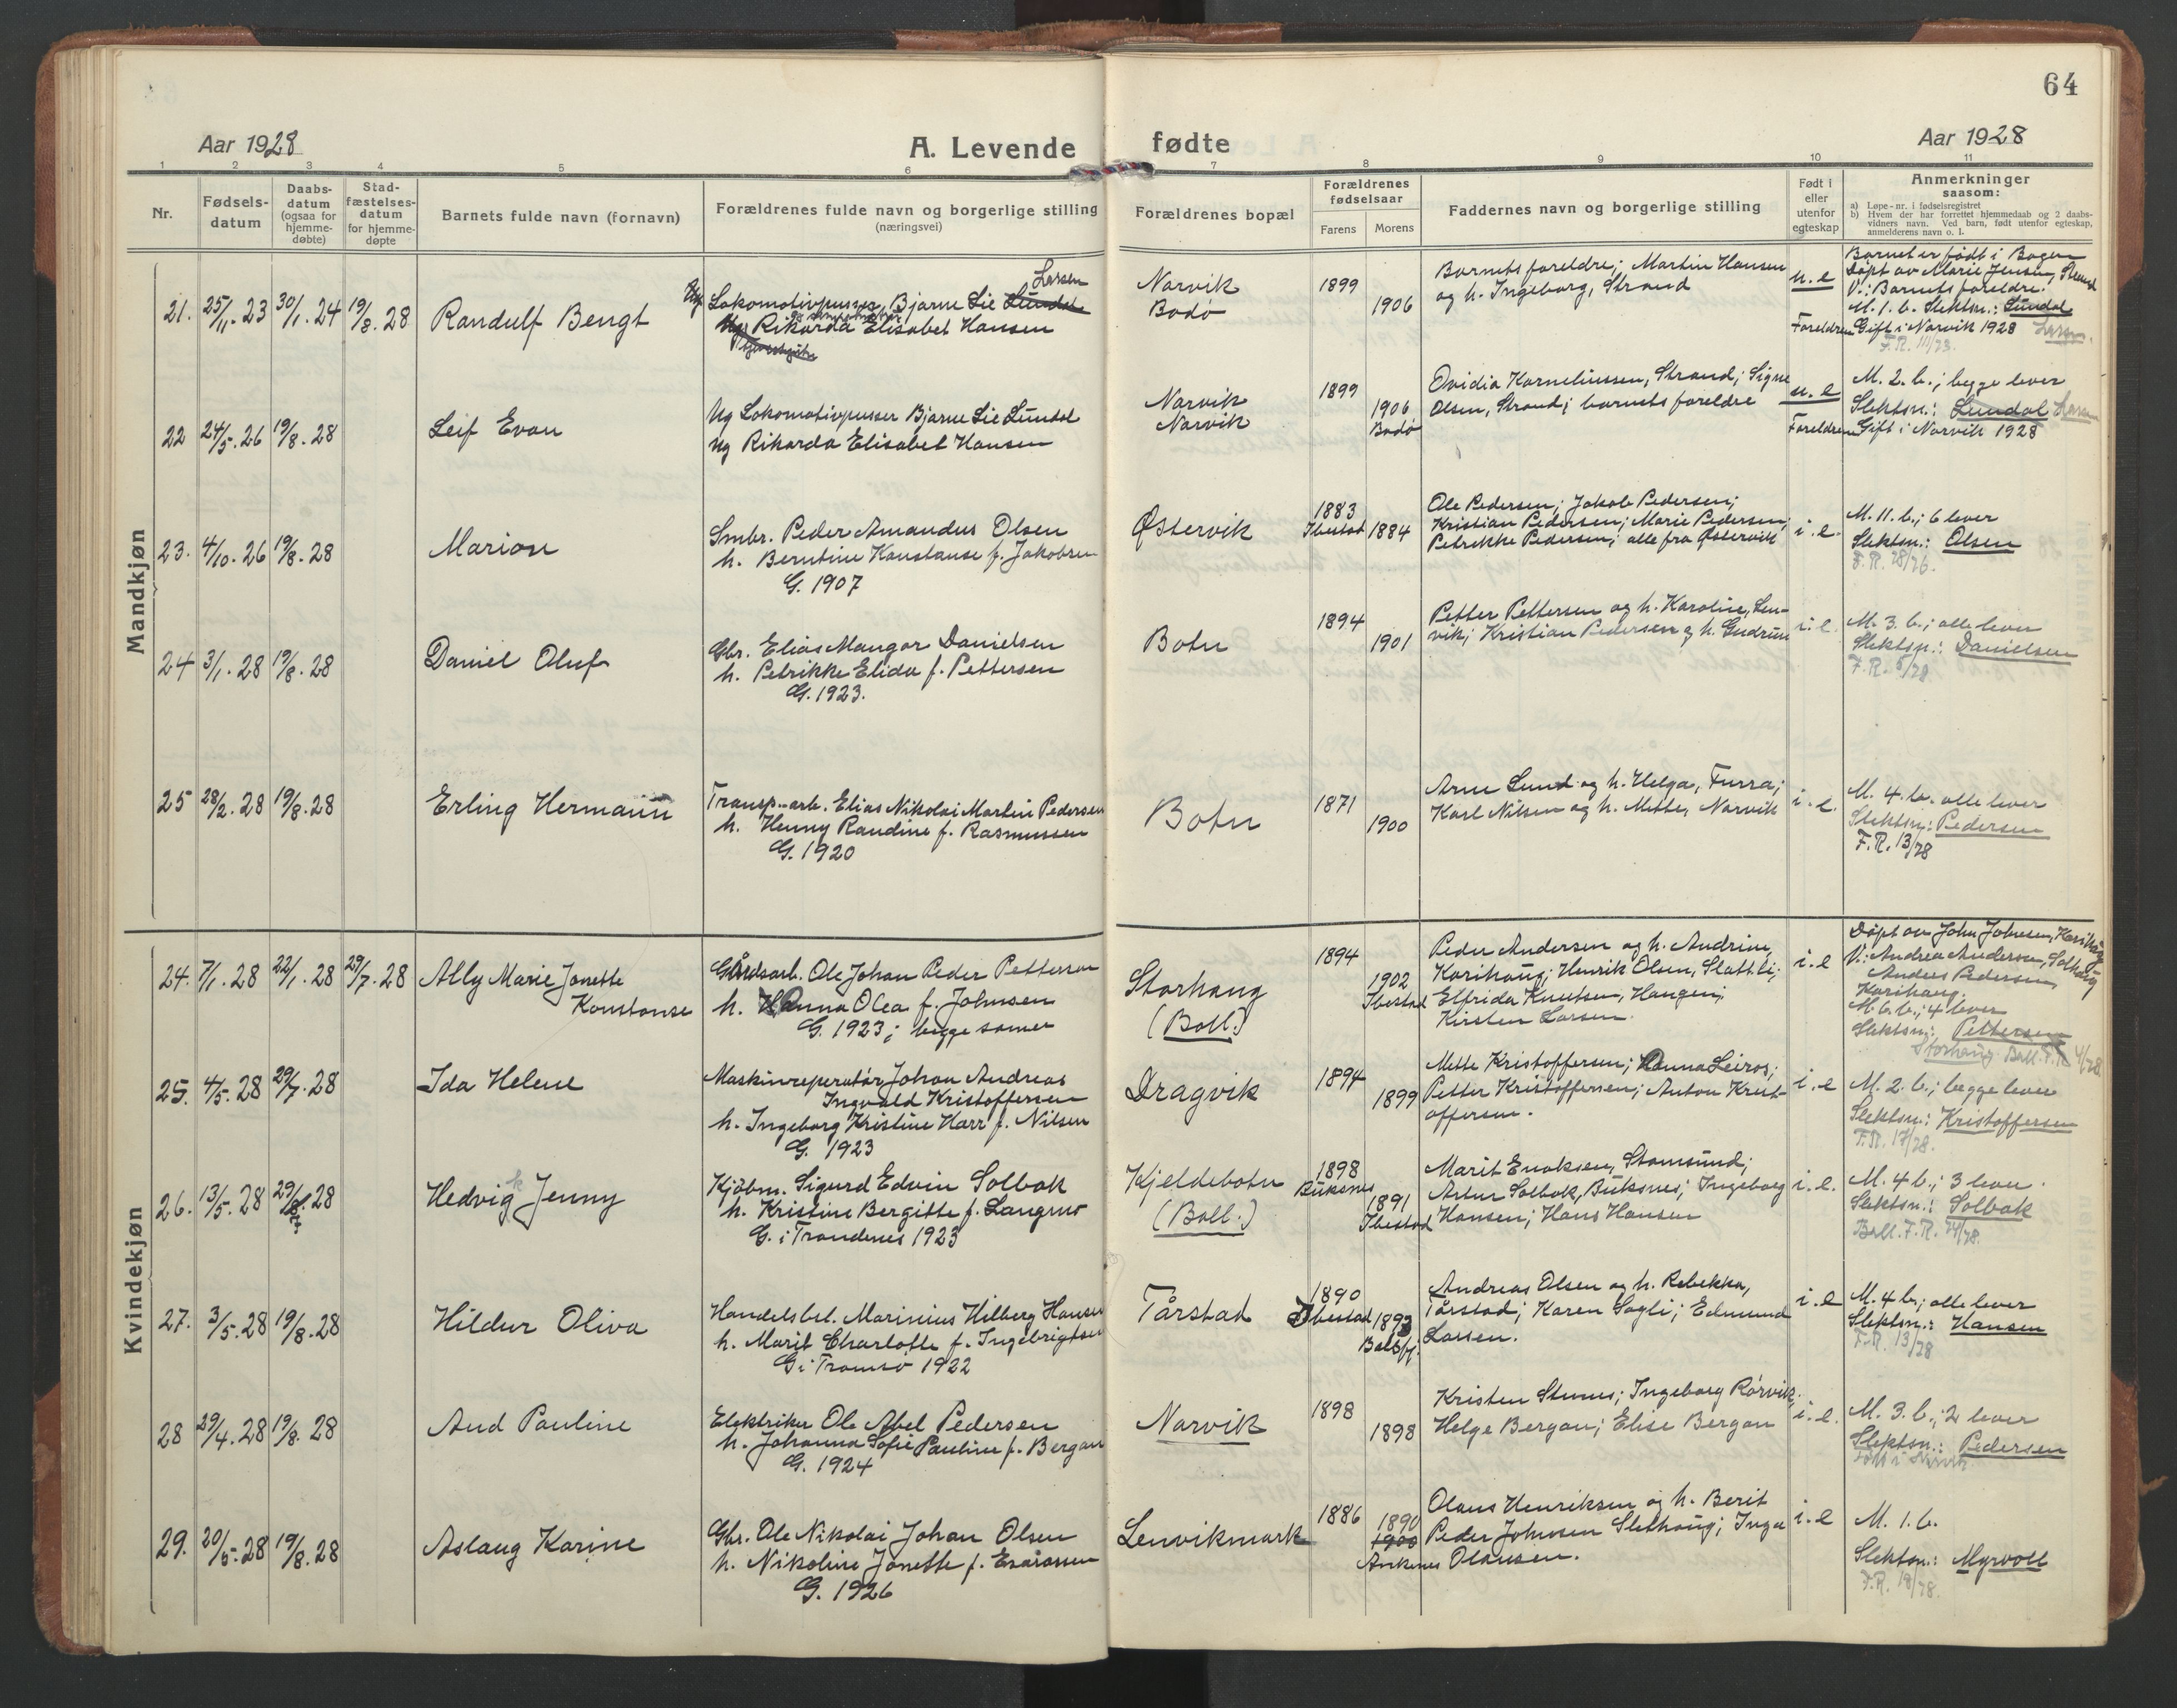 64
Aar 1928
A. Levende fødte
Aar 1928
1 2 3 4 5 6 7 8 9 10 11
Nr.
Fødsels-
datum
Daabs-
datum
(ogsaa for
hjemme-
døbte)
Stad-
fæstelses-
datum
for hjemme-
døpte
Barnets fulde navn (fornavn)
Forældrenes fulde navn og borgerlige stilling
(næringsvei)
Forældrenes bopæl
Forældrenes
fødselsaar
Farens Morens
Faddernes navn og borgerlige stilling
Født i
eller
utenfor
egteskap
Anmerkninger
saasom:
a) Løpe-nr. i fødselsregistret
b) Hvem der har forrettet hjemmedaab og 2 daabs-
vidners navn. Ved barn, født utenfor egteskap,
anmelderens navn o. l.
Mandkjøn
21. 25/11.23 30/1.24 19/8.28 Randulf Bengt
Larsen
Ug. Lokomotivpusser, Bjarne Lie Lundal
Ug. Rikarda Elisabet Hansen
Narvik
Bodø
1899
1906
Barnets foreldre; Martin Hansen
og h. Ingeborg, Strand
u. e
Foreldrene Gift i Narvik 1928 Larsen.
Barnet er født i Bogen
Døpt av Marie Jensen, Strand
V.: Barnets foreldre.
M. 1. b. Slektsn.: Lundal
F.R. 111/23.
22 24/5.26 19/8.28 Leif Evan
Ug Lokomotivpusser Bjarne Lie Lundal
Ug Rikarda Elisabet Hansen
Narvik
Narvik
1899
1906
Bodø
Ovidia Korneliussen, Strand; Signe
Olsen, Strand; barnets foreldre
u. e
M. 2. b.; begge lever
Slektsn.: Lundal Larsen
Foreldrene Gift i Narvik 1928
23. 4/10.26 19/8.28 Marion
Smbr. Peder Amandus Olsen
h. Berntine Konstanse f. Jakobsen
G. 1907
Østervik
1883
Ibestad 1884
Ole Pedersen; Jakob Pedersen;
Kristian Pedersen; Marie Pedersen;
Petrikke Pedersen; alle fra Østervik
i. e.
M. 11. b.; 6 lever
Slektsn.: Olsen
F.R. 28/26.
24 3/1.28 19/8.28 Daniel Oluf
Gbr. Elias Mangor Danielsen
h. Petrikke Elida f. Pettersen
G. 1923.
Botn
1894
1901
Petter Pettersen og h. Karoline, Len-
vik; Kristian Pedersen og h. Gudrun
i. e.
M. 3. b.; alle lever
Slektsn.: Danielsen
F.R. /28
25 28/2.28 19/8.28 Erling Hermann
Transp.-arb. Elias Nikolai Martin Pedersen
h. Henny Randine f. Rasmussen
G. 1920
Botn
1871
1900
Arne Lund og h. Helga, Furra;
Karl Nilsen og h. Mette, Narvik
i. e.
M. 4. b. alle lever
Slektsn.: Pedersen
F.R. 13/28
Kvindekjøn
24. 7/1.28 22/1.28 29/7.28 Ally Marie Jonette
Konstanse
Gårdsarb. Ole Johan Peder Pettersen
h. Hanna Olea f. Johnsen
G. 1923; begge samer
Storhaug
(Ball.)
1894
1902
Ibestad
Peder Andersen og h. Andrine,
Korihaug; Henrik Olsen, Slattli;
Elfrida Knutsen, Haugen;
Kirsten Larsen.
i. e
Døpt av John Johnsen, Korihaug
V.: Andrea Andersen, Solhaug
Anders Pedersen,
Korihaug.
M. 6. b.; 4 lever
Slektsn.: Pettersen
Storhaug Ball. F.R. 4/28
25. 4/5.28 29/7.28 Ida Helene
Maskinreperatør Johan Andreas
Ingvald Kristoffersen
h. Ingeborg Kristine Harr f. Nilsen
G. 1923
Dragvik
1894
1899
Mette Kristoffersen; Hanna Leiros;
Petter Kristoffersen; Anton Krist-
offersen.
i. e
M. 2. b.; begge lever
Slektsn.: Kristoffersen
F.R. 17/28.
26. 13/5.28 29/7.28 Hedvigk Jenny
Kjøbm. Sigurd Edvin Solbak
h. Kristine Bergitte f. Langmo
G. i Trondenes 1923
Kjeldebotn
(Ball.)
1898
Buksnes
1891
Ibestad
Marit Enoksen, Stamsund;
Artur Solbak, Buksnes; Ingeborg
Hansen; Hans Hansen
i. e.
M. 4 b.; 3 lever.
Slektsn.: Solbak
Ball. F.R. 24/28.
27. 3/5.28 19/8.28 Hildur Oliva
Handelsbet. Marinius Hilberg Hansen
h. Marit Charlotte f. Ingebrigtsen
G. i Tromsø 1922
Tårstad
1890
Ibestad 1893
Balsfj.
Andreas Olsen og h. Rebekka,
Tårstad; Karen Sagli; Edmund
Larsen.
i. e
M. 4 b.; alle lever
Slektsn.: Hansen
F.R. 13/28
28 29/4.28 19/8.28 Aud Pauline
Elektriker Ole Abel Pedersen
h. Johanna Sofie Pauline f. Bergan
G. 1924
Narvik
1898
1898
Kristen Stenes; Ingeborg Rørvik;
Helge Bergan; Elise Bergan
i. e.
M. 3. b.; 2 lever
Slektsn.: Pedersen
Født i Narvik
29. 20/5.28 19/8.28 Aslaug Karine
Gbr. Ole Nikolai Johan Olsen
h. Nikoline Jonette f. Esaiassen
G. 1926
Lenvikmark
1886
1890
1900
Ankenes
Olaus Henriksen og h. Berit
Peder Johnsen Slethaug; Inga
Olausen.
i. e
M. 1. b.
Slektsn.: Myrvoll
F.R. 18/28.